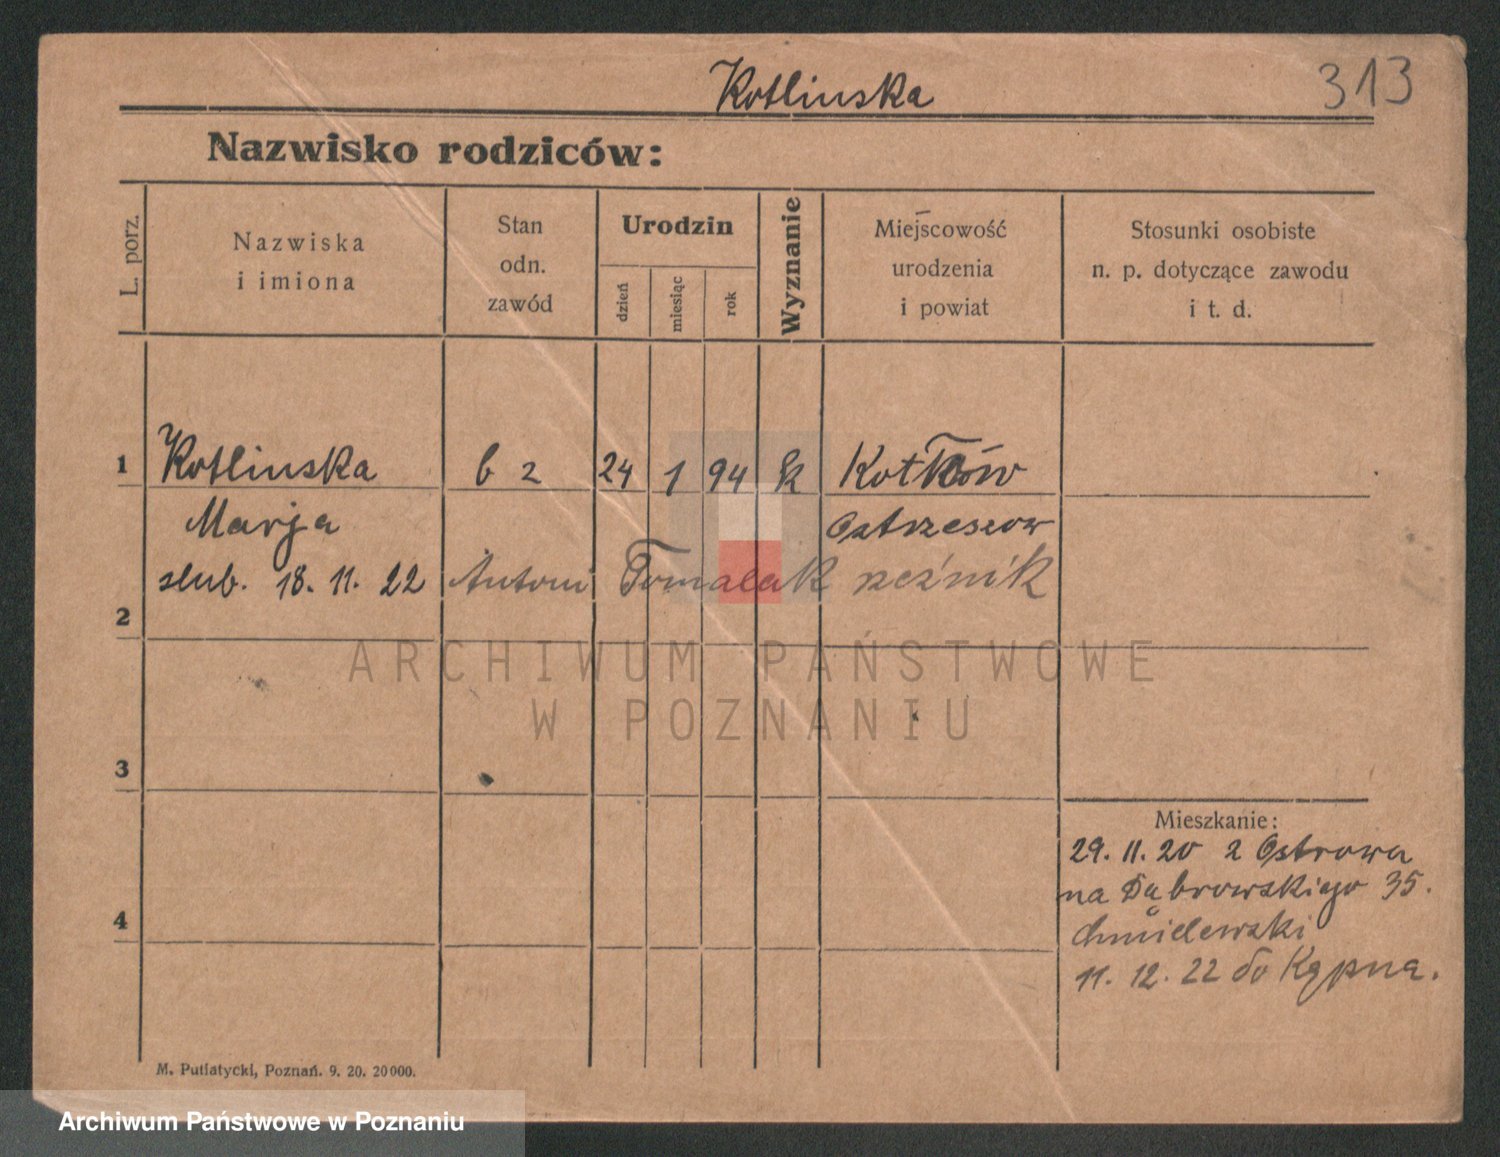 Kotlinska
313
Nazwisko rodziców:
L. porz.
Nazwiska
i imiona
Stan
odn.
zawód
Urodzin
dzień
miesiąc
rok
Wyznanie
Miejscowość
urodzenia
i powiat
Stosunki osobiste
n. p. dotyczące zawodu
i t. d.
1 Kotlinska b z 24 1 94 k Kotłów
Marja Ostrzeszow
ślub. 18. 11. 22 Antoni Tomalak rzeźnik
2
ARCHIWUM PAŃSTWOWE
W POZNANIU
3
Mieszkanie:
29. 11. 20 z Ostrowa
na Dąbrowskiego 35.
4
Chmielewski
11. 12. 22 do Kępna.
M. Putiatycki, Poznań. 9. 20. 20000.
Archiwum Państwowe w Poznaniu